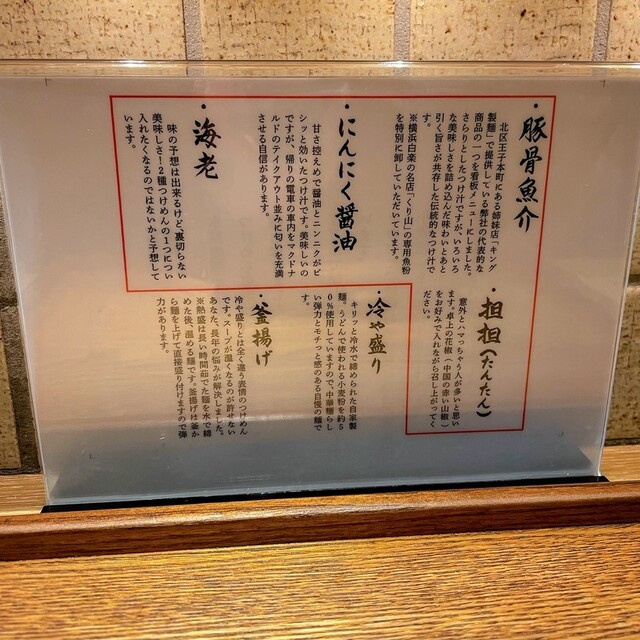 ・豚骨魚介
北区王子本町にある姉妹店「キング
製麺」で提供している弊社の代表的な
商品の一つを看板メニューにしました。
さらりとしたつけ汁ですが、いろいろ
な美味しさを詰め込んだ味わいとあと
引く旨さが共存した伝統的なつけ汁で
す。
※横浜白楽の名店「くり山」の専用魚粉
を特別に卸していただいています。
・にんにく醤油
甘さ控えめで醤油とニンニクがビ
シッと効いたつけ汁です。美味しいの
ですが、帰りの電車の車内をマクドナ
ルドのテイクアウト並みに匂いを充満
させる自信があります。
・海老
味の予想は出来るけど、裏切らない
美味しさ!2種つけめんの1つについ
入れたくなるのではないかと予想して
います。
・担担(たんたん)
意外とハマっちゃう人が多いと思い
ます。卓上の花椒(中国の赤い山椒)
をお好みで入れながら召し上がってく
ださい。
・冷や盛り
キリッと冷水で締められた自家製
麺。うどんで使われる小麦粉を約5
0%使用していますので、中華麺らし
い弾力とモチっと感のある自慢の麺で
す。
・釜揚げ
冷や盛りとは全く違う表情のつけめん
です。スープが温くなるのが許せない
あなた、長年の悩みが解決しました。
※熱盛は長い時間茹でた麺を水で締
めた後、温める麺です。釜揚げは釜か
ら麺を上げて直接盛り付けますので弾
力があります。